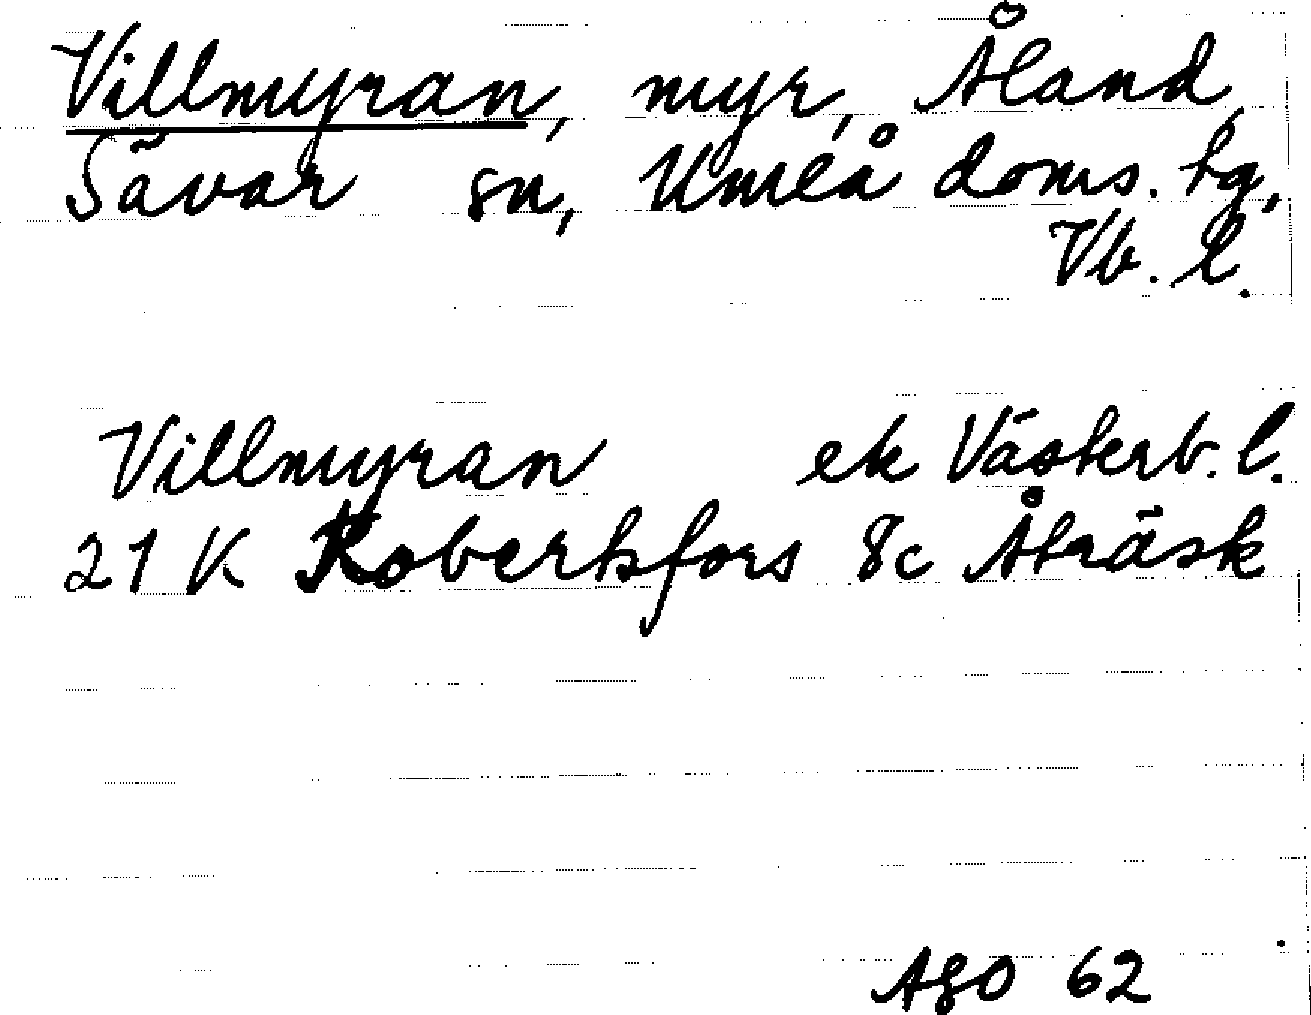 Villmyran, myr, Åland,
Sävar sn, Umeå doms. tg,
Vb. l.
Villmyran ek Västerb. l.
21 K Robertsfors 8c Åträsk
AGO 62